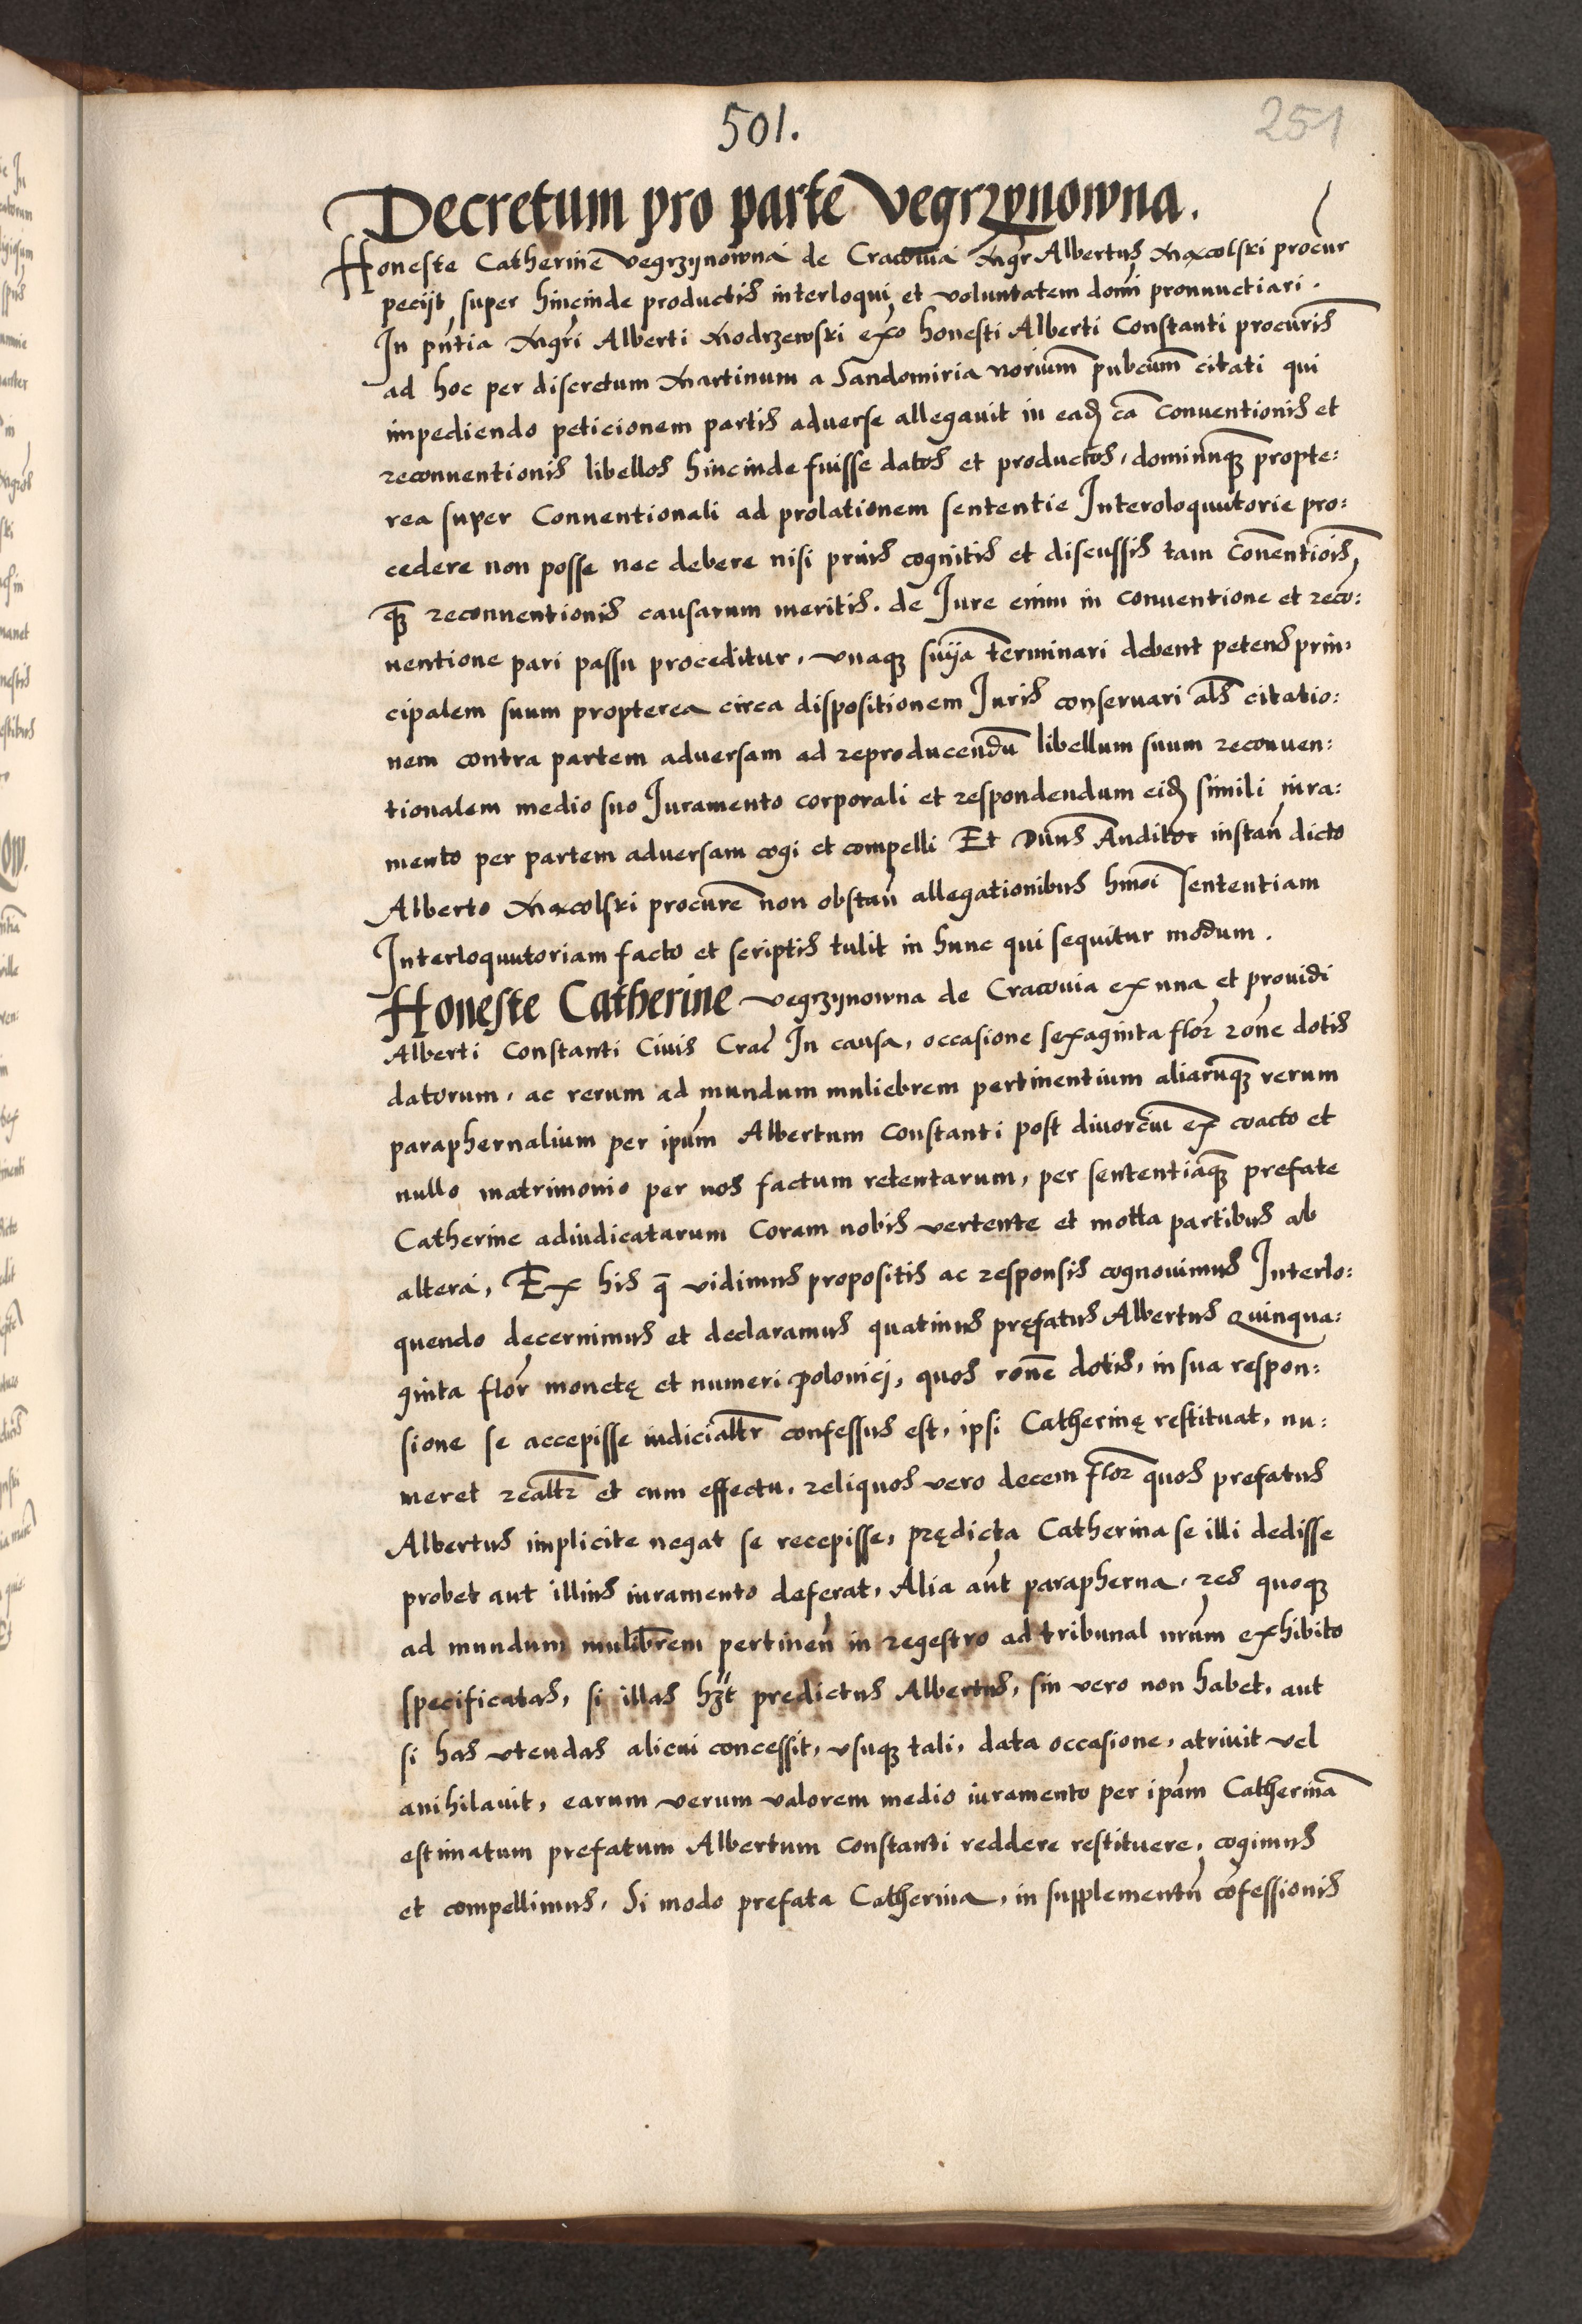 501.
251
Decretum pro parte Vegrzynowna.
Honeste Catherine Vegrzynowna de Cracovia Mgr Albertus Macolski procur
pecijt super hincinde productis interloqui et voluntatem domi pronunctiari.
In pñtia Mgri Alberti Modrzewski exo honesti Alberti Constanti procuris
ad hoc per discretum Martinum a Sandomiria norium pubcum citati qui
impediendo peticionem partis adverse allegavit in ead ca Conventionis et
reconventionis libellos hincinde fuisse datos et productos, dominũq propte:
rea super Conventionali ad prolationem sententie Interoloquutorie pro:
cedere non posse nec debere nisi prius cognitis et discussis tam Conentiois,
q̃ reconventionis causarum meritis. de Iure enim in conventione et reco:
nventione pari passu proceditur, vnaq suija terminari debent petens prin:
cipalem suum propterea circa dispositionem Iuris conservari als citatio:
nem contra partem adversam ad reproducendũ libellum suum reconven:
tionalem medio suo Iuramento corporali et respondendum eid simili iura:
mento per partem adversam cogi et compelli Et Dũns Auditor instañ dicto
Alberto Macolski procure non obstañ allegationibus hmoi sententiam
Interloquutoriam facto et scriptis tulit in hunc qui sequitur modum.
Honeste Catherine Vegrzynowna de Cracovia ex una et providi
Alberti Constanti Civis Crac In causa, occasione sexaginta flor rone dotis
datorum, ac rerum ad mundum muliebrem pertinentium aliarũq rerum
paraphernalium per ipum Albertum Constanti post divorciũ ex coacto et
nullo matrimonio per nos factum retentarum, per sententiãq prefate
Catherine adiudicatarum Coram nobis vertente et motta partibus ab
altera, Ex his q̃ vidimus propositis ac responsis cognovimus Interlo:
quendo decernimus et declaramus quatinus pręfatus Albertus Quinqua:
ginta flor monetę et numeri polonicj, quos rone dotis, in sua respon:
sione se accepisse iudicialtr confessus est, ipsi Catherinę restituat, nu:
meret realtr et cum effectu, reliquos vero decem flor quos prefatus
Albertus implicite negat se recepisse, prędicta Catherina se illi dedisse
probet aut illius iuramento deferat, Alia aut parapherna, res quoq
ad mundum mulibrem pertineñ in regestro ad tribunal nrum exhibito
specificatas, si illas hzt predictus Albertus, sin vero non habet, aut
si has vtendas alicui concessit, vsuq tali, data occasione, atrivit vel
anihilavit, earum verum valorem medio iuramento per ipam Catherinã
estimatum prefatum Albertum Constanti reddere restituere, cogimus
et compellimus, Si modo prefata Catherina, in supplementũ cofessionis